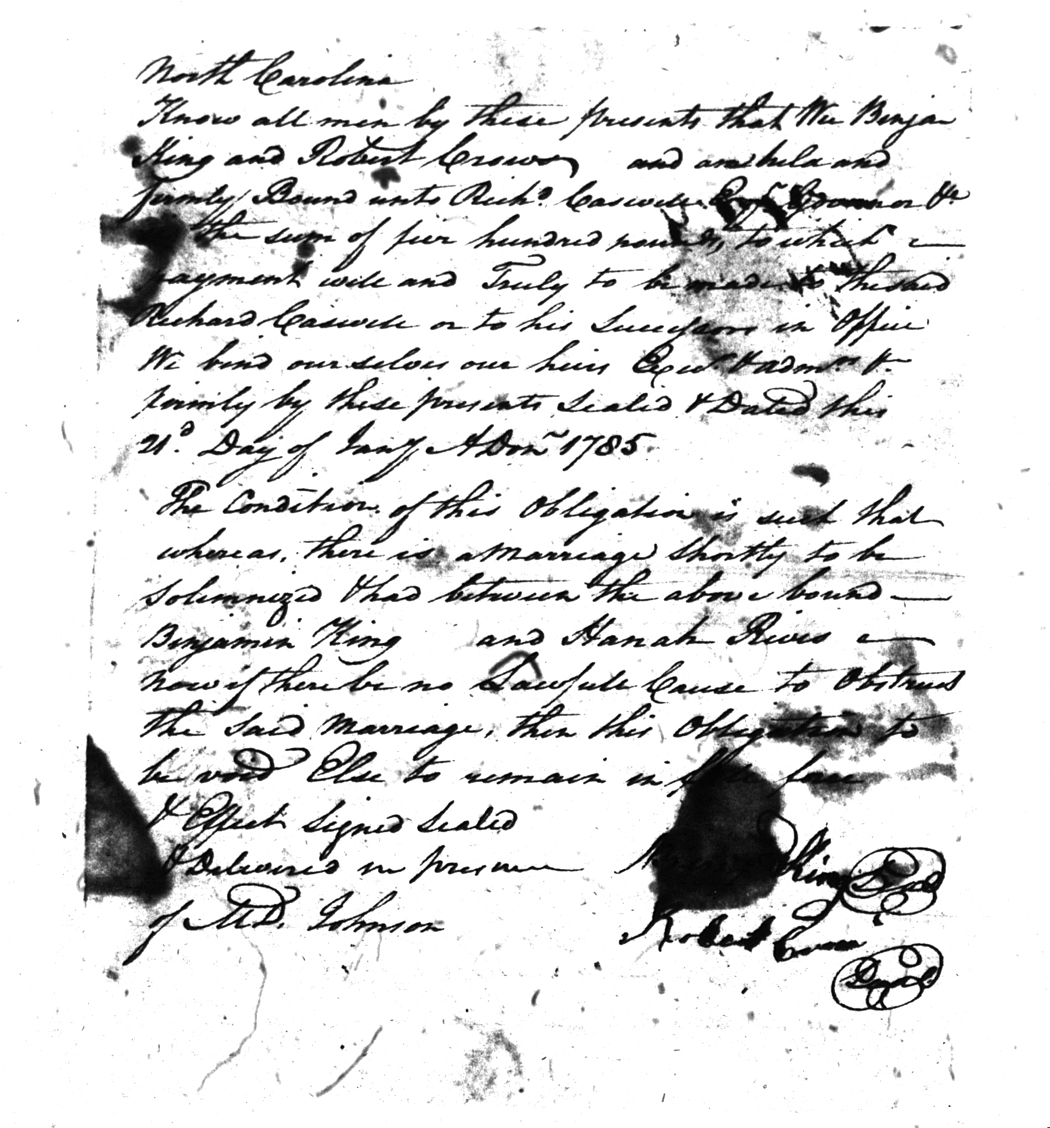 North Carolina
Know all men by these presents that We Benja
King and Robert Crows and are held and
firmly Bound unto Richd. Caswell Esqr. Governor &c
the sum of five hundred pounds, to which
payment well and Truly to be made to the said
Richard Caswell or to his Successors in Office
We bind our selves our heirs Exrs & admrs &c
firmly by these presents Sealed & Dated this
21d. Day of Jany A Don 1785
The Condition of this Obligation is such that
whereas, there is a Marriage Shortly to be
Solemnized & had between the above bound
Benjamin King and Hanah Rives
Now if there be no Lawfull Cause to Obstruct
the Said Marriage, then this Obligation to
be void Else to remain in full force
& Effect Signed Sealed
& Delivered in presence King Seal
of Johnson Robert
Seal